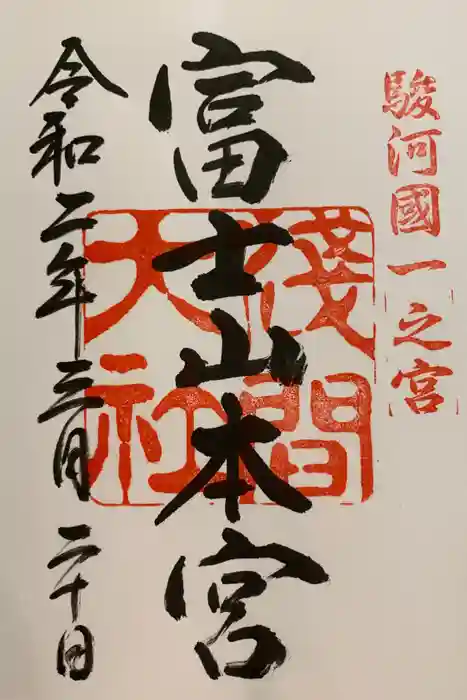 駿河國一之宮
富士山本宮
淺間大社
令和二年三月二十日